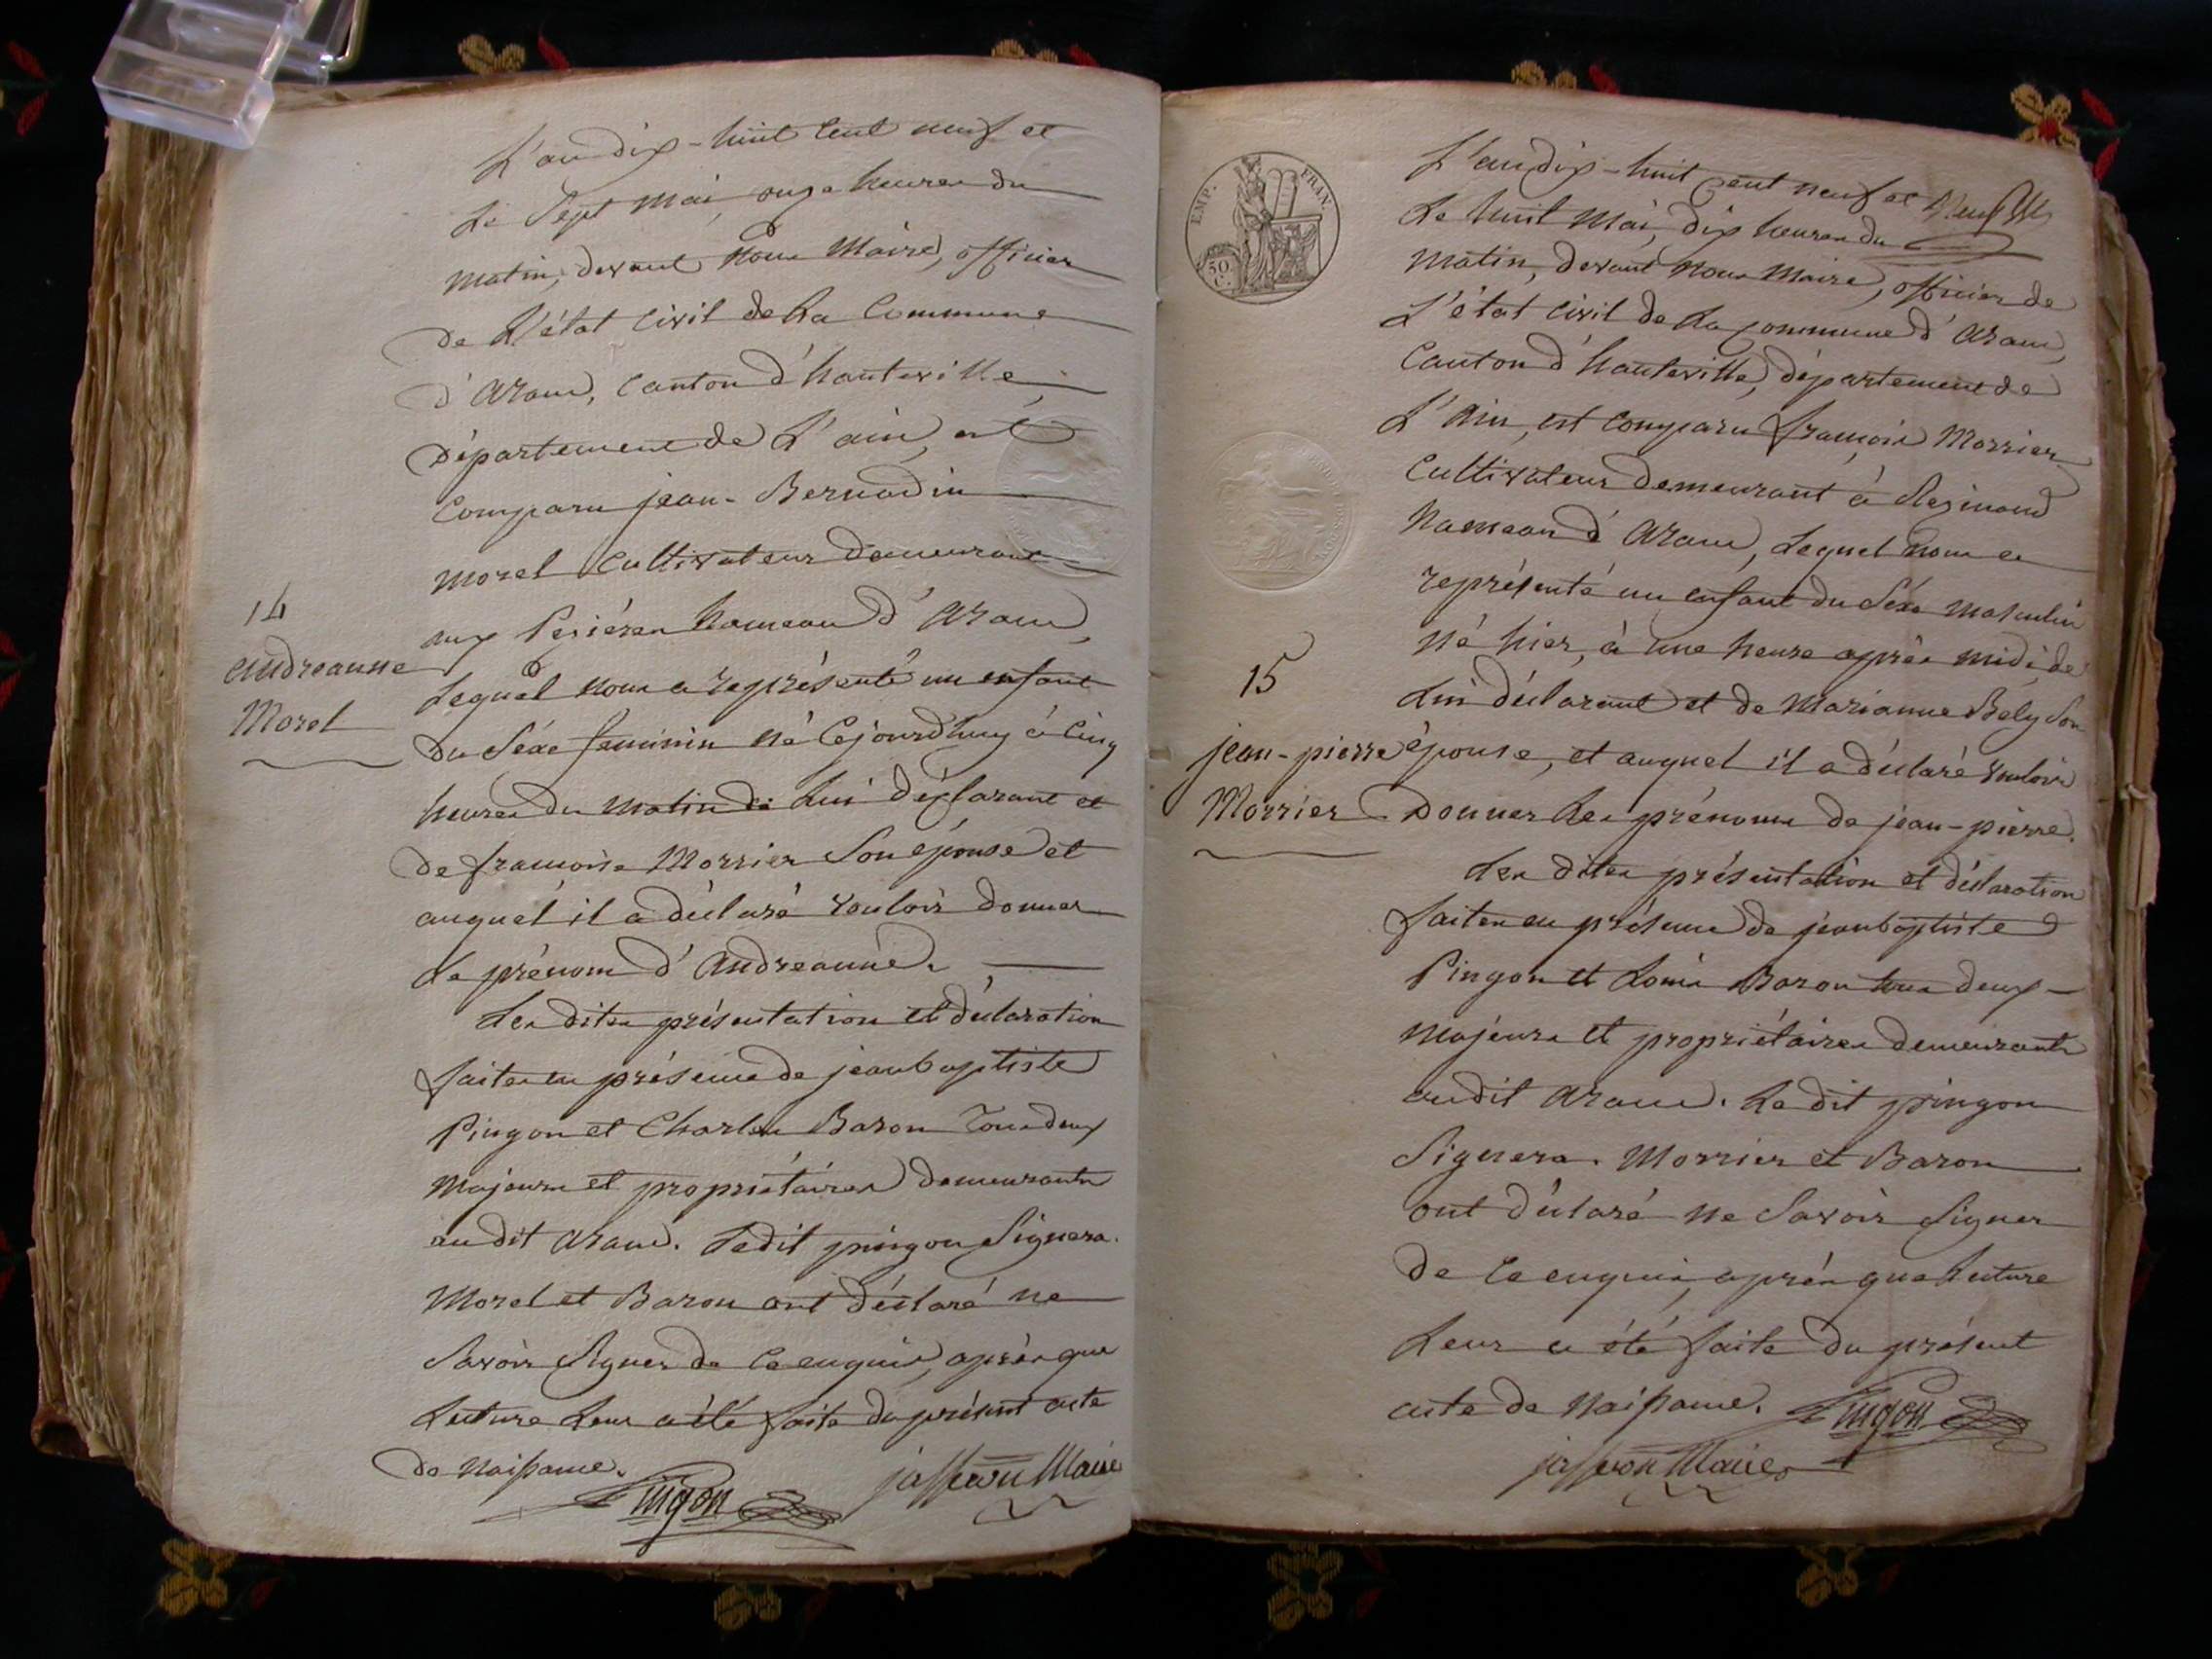 L'an dix-huit cent neuf et
Le Sept mai onze heures du
matin, devant nous Maire, officier
de L'état civil de La Commune
d'Aranc, Canton d'hauteville,
Département de L'ain, est
Comparu jean-Bernadin
morel Cultivateur demeurant
aux hameau d'Aranc,
Lequel nous a représenté un enfant
Du Séxe feminin né Cejourdhuy à Cinq
heures du matin de Lui déclarant et
de francoise Morrier Son épouse et
auquel il a déclaré vouloir donner
Le prénom d'Andreanne.
Les dites présentation et déclaration
faites en présence de jeanbaptiste
Pingon et Charles Baron Tous deux
majeurs et propriétaires demeurants
audit Aranc. Ledit pingon Signera.
Morel et Baron ont déclaré ne
Savoir Signer de Ce enquis, après que
Lecture Leur a été faite du présent acte
de Naissance.
Pingon
jasseron Maire
14
andreanne
Morel
EMP. FRAN.
50 C.
L'an dix-huit cent neuf et
Le huit Mai, dix heures du
matin, devant nous Maire, officier de
L'état civil de La commune d'Aranc,
Canton d'hauteville, département de
L'Ain, est comparu françois Morrier
Cultivateur demeurant à Resinand
hameau d'Aranc, Lequel nous a
représenté un enfant du Séxe masculin
né hier, à une heure après midi, de
Lui déclarant et de Marianne Bely Son
épouse, et auquel il a déclaré vouloir
Donner Les prénoms de jean-pierre.
Les dites présentation et déclaration
faites en présence de jeanbaptiste
Pingon et Louis Baron tous deux
majeurs et propriétaires demeurants
audit Aranc. Le dit pingon
Signera. Morrier et Baron
ont déclaré ne Savoir Signer
de Ce enquis, après que Lecture
Leur a été faite du présent
acte de Naissance.
Pingon
jasseron Maire
15
jean-pierre
Morrier